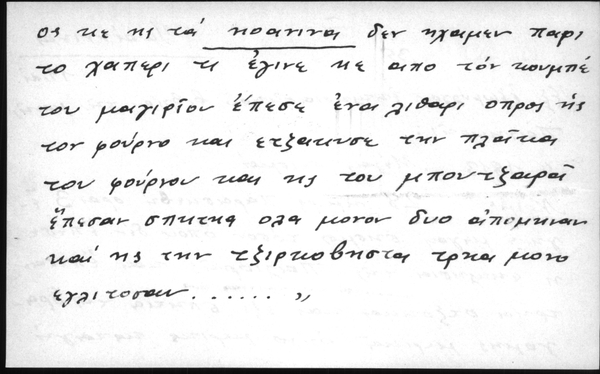 ος κε ης τά ηοανινα δεν ηχαμεν παρι
το χαπερι τι έγινε κε απο τόν κουμπέ
του μαγιρίου έπεσε ένα λιθαρι οπρος ής
τον φούρνο και ετζακισε την πλάκα
του φούρνου και ης του μποντζαρά
έπεσαν σπητηα ολα μονον δυο απομιναν
καί ης την τζιρκοβηστα τρια μονο
εγλιτοσαν ...... ,,